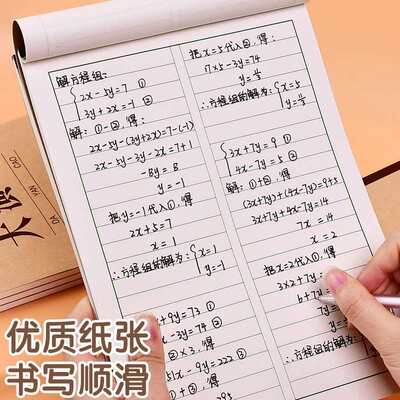 解方程组:
2x-5y=7 ①
3y+2x=-1 ②
解: ①-②,得:
2x-5y-(3y+2x)=7-(-1)
2x-5y-3y-2x=7+1
-8y=8
y=-1
把y=-1代入①,得
2x+5=7
x=1
∴方程组的解为:
x=1
y=-1
+9y=73 ①
x-3y=74 ②
②×3,得:
51x-9y=222 ③
①+③,得:
把x=5代入②,得:
17×5-3y=74
∴方程组的解为:
x=5
3x+7y=9 ①
4x-7y=5 ②
解: ①+②,得
(3x+7y)+(4x-7y)=9+5
3x+7y+4x-7y=14
7x=14
x=2
把x=2代入①,得
3×2+7y=
6+7y=
7y=
y=
∴方程组的解为:
优质纸张
书写顺滑